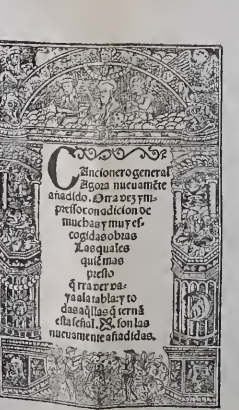 Cancionero general
Agora nueuamẽte
añadido. Otra vez ym-
presso con adicion de
muchas y muy es-
cogidas obras
Las quales
quiẽ mas
presto
q̃rra ver va-
ya a la tabla: y to
das aq̃llas q̃ ternã
esta señal. son las
nueuamente añadidas.